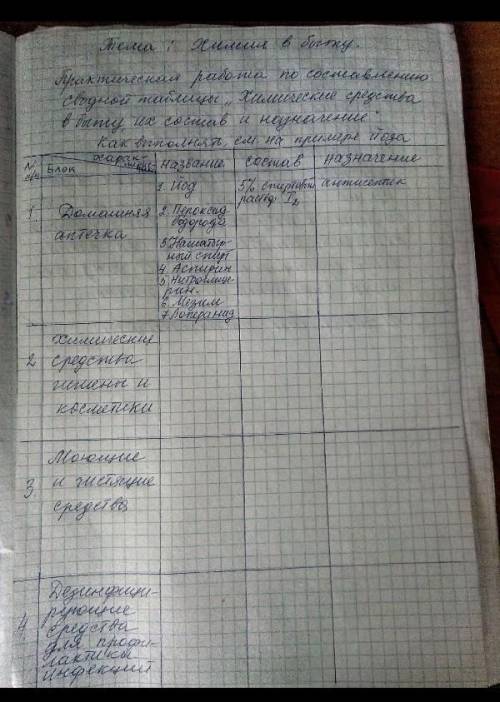 Тема: Химия в быту.
Практическая работа по составлению
сводной таблицы „Химические средства
в быту их состав и назначение".
Как выполнять, см. на примере йода
N п/п Блок Характ. название состав назначение
1. Йод 5% спиртовой раствор I₂ антисептик
1 Домашняя аптечка
2. Пероксид
водорода
3. Нашатыр-
ный спирт
4. Аспирин
5. Нитроглице-
рин.
6. Мезим
7. Лоперамид
2 Химические
средства
гигиены и
косметики
3 Моющие
и чистящие
средства
4 Дезинфици-
рующие
средства
для профи-
лактики
инфекций